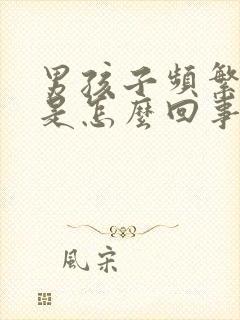 男孩子頻繁
是怎麼回事
風宋